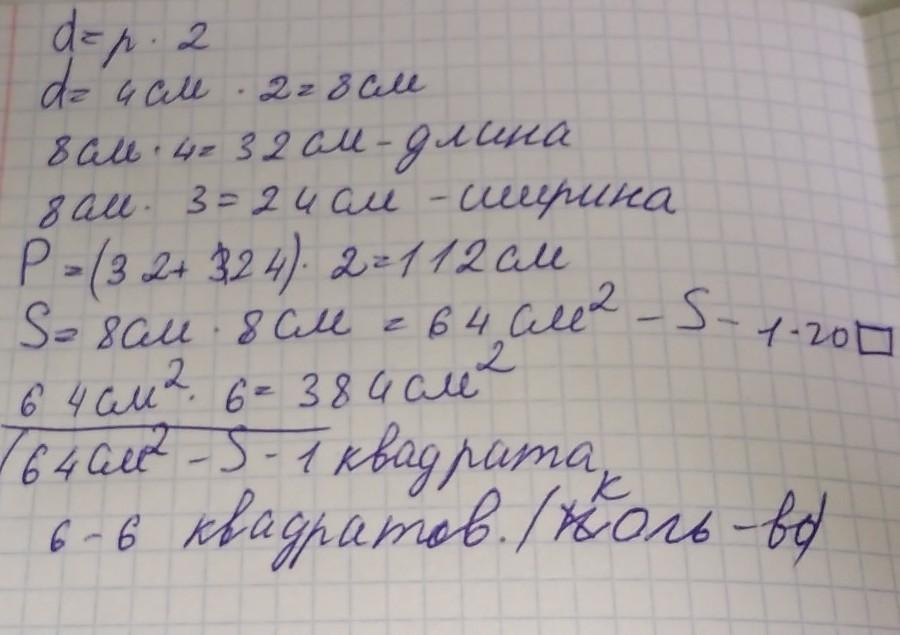 d = r · 2
d = 4см · 2 = 8см
8см · 4 = 32см - длина
8см · 3 = 24см - ширина
P = (32 + 24) · 2 = 112см
S = 8см · 8см = 64см² - S - 1-го □
64см² · 6 = 384см²
(64см² - S - 1 квадрата,
6 - 6 квадратов. (коль-во)